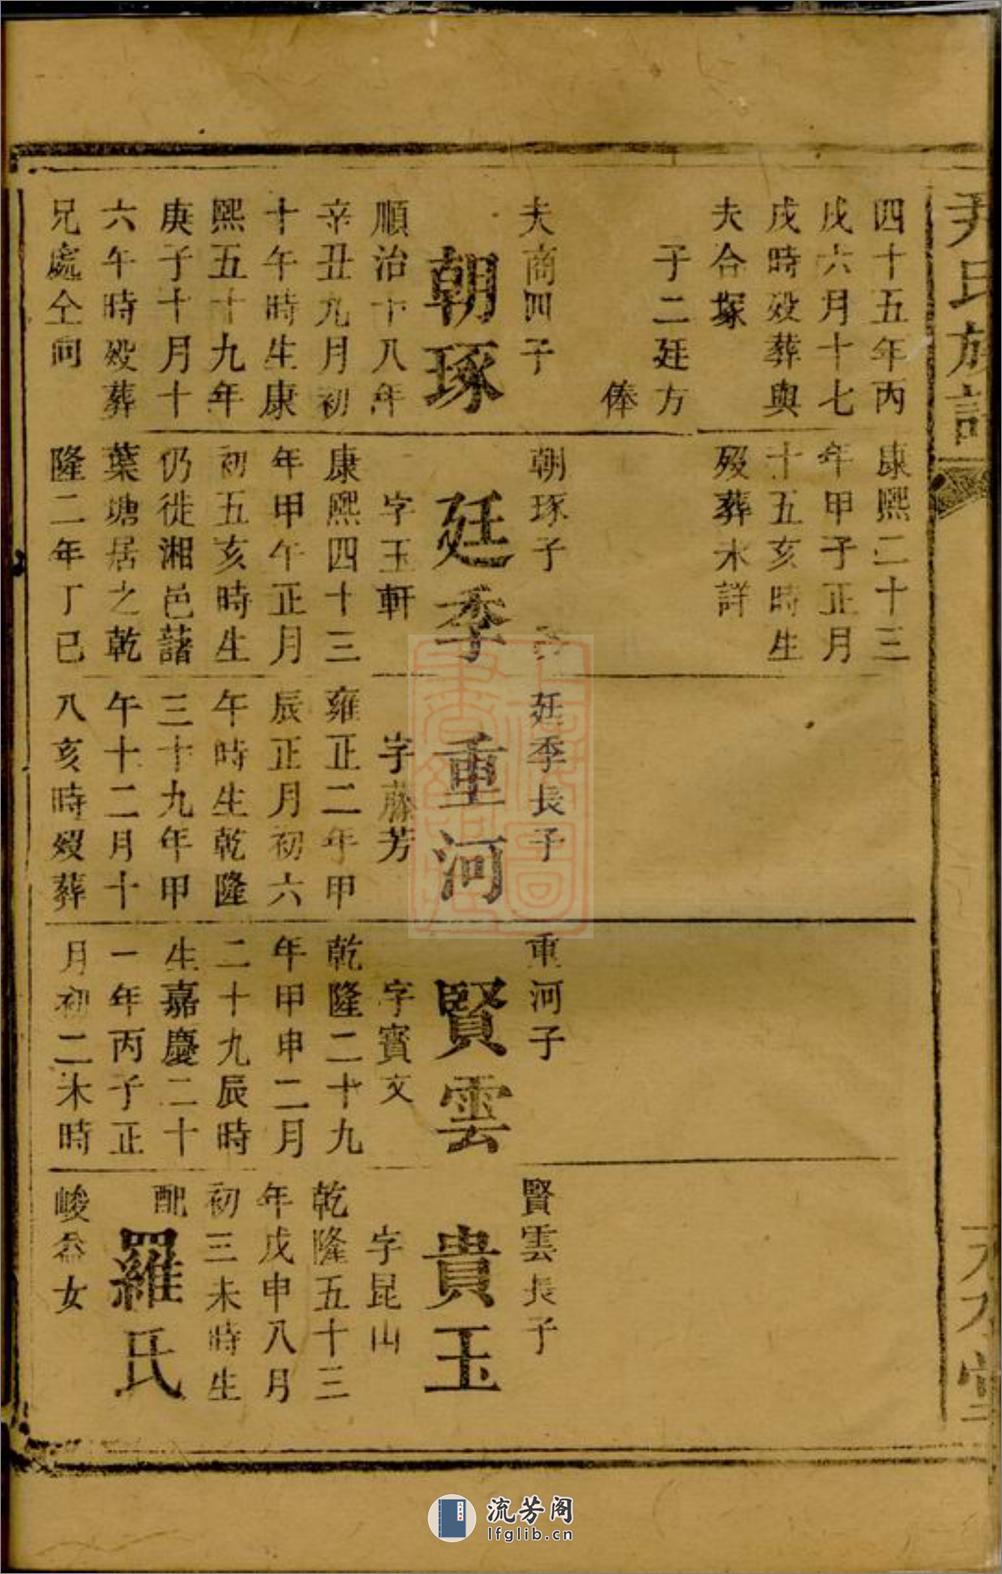 尹氏族譜
四十五年丙
戌六月十七
戌時殁葬與
夫合塚
子二廷方
俸
夫商四子
朝琢
順治十八年
辛丑九月初
十午時生康
熙五十九年
庚子十月十
六午時殁葬
兄處仝向
康熙二十三
年甲子正月
十五亥時生
殁葬未詳
朝琢子
廷季
字玉軒
康熙四十三
年甲午正月
初五亥時生
仍徙湘邑藷
葉塘居之乾
隆二年丁巳
廷季長子
重河
字藤芳
雍正二年甲
辰正月初六
午時生乾隆
三十九年甲
午十二月十
八亥時殁葬
重河子
賢雲
字賓文
乾隆二十九
年甲申二月
二十九辰時
生嘉慶二十
一年丙子正
月初二未時
賢雲長子
貴玉
字昆山
乾隆五十三
年戊申八月
初三未時生
配
羅氏
峻益女
天水堂
流芳阁
lfglib.cn